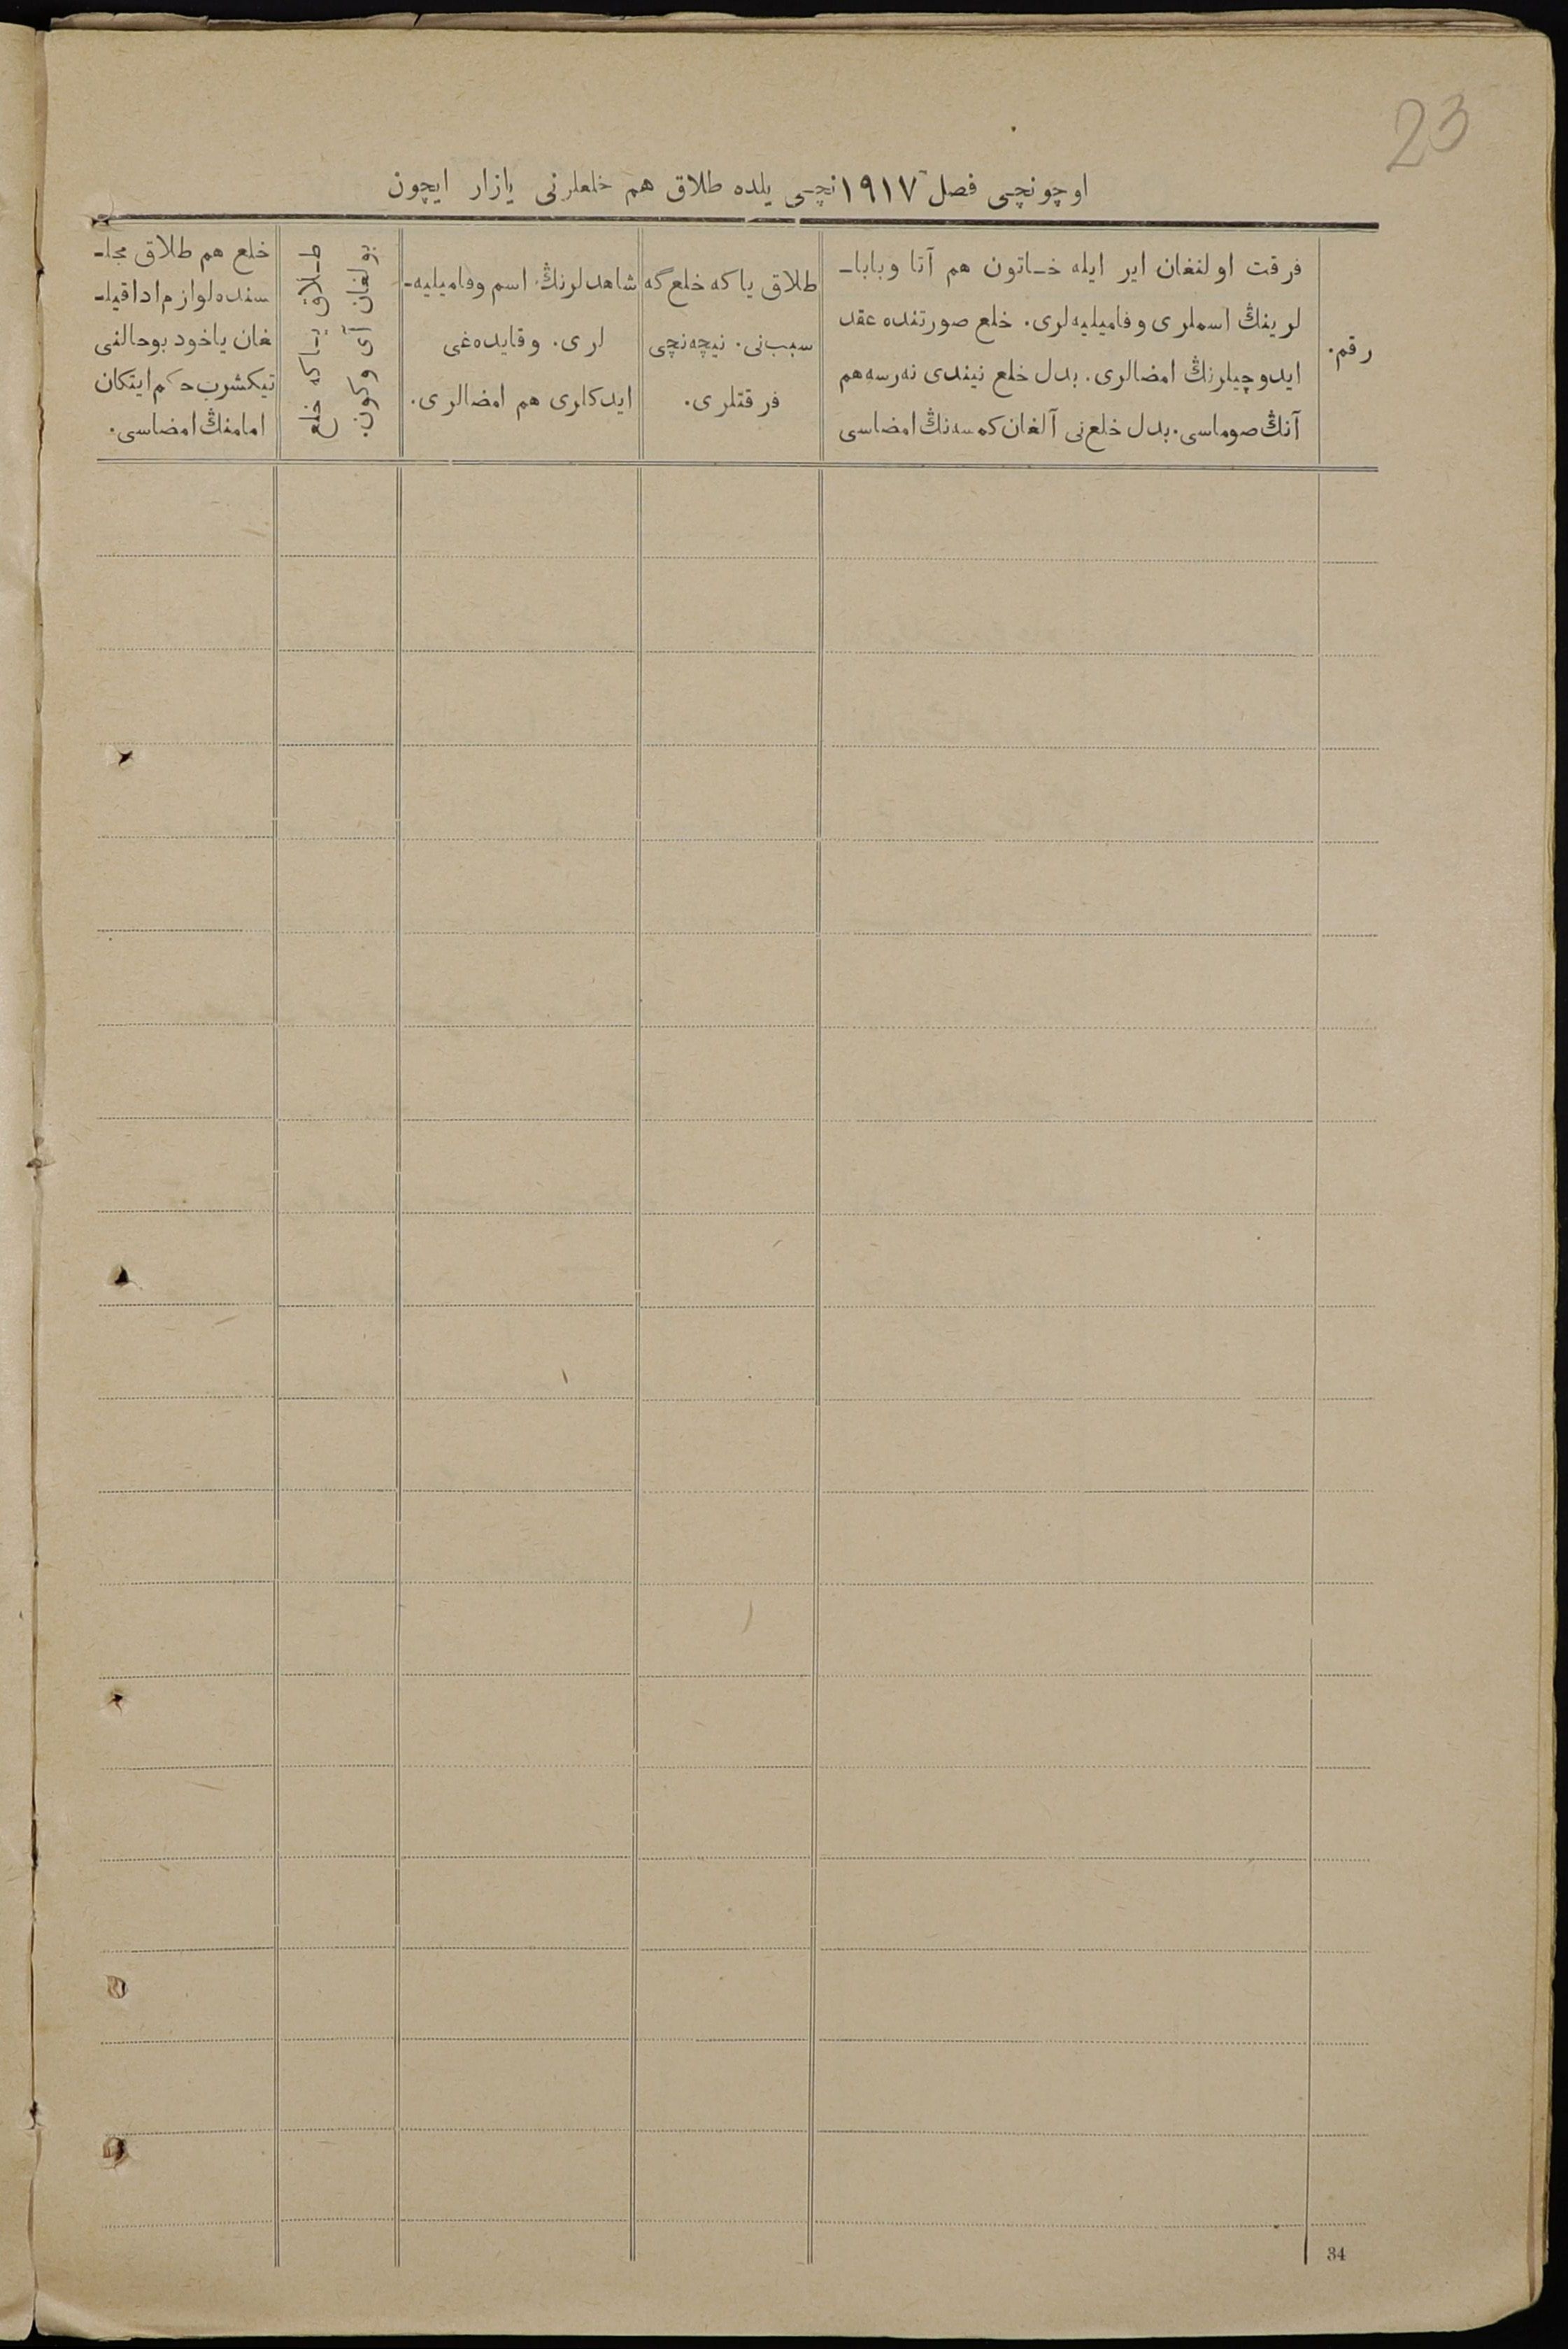 23
اوچونچی فصل ۱۹۱۷ نچی یلده طلاق هم خلعلرنی یازار ایچون
رقم.
فرقت اولنغان ایر ایله خاتون هم آتا وبابا-
لرینڭ اسملری وفامیلیه‌لری. خلع صورتنده عقد
ایدوچیلرنڭ امضالری. بدل خلع نیندی نه‌رسه هم
آنڭ صوماسی. بدل خلع‌نی آلغان کمسه‌نڭ امضاسی
طلاق یا که خلع گه
سبب‌نی. نیچه‌نچی
فرقتلری.
شاهدلرنڭ اسم وفامیلیه-
لری. وقایده‌غی
ایدکلری هم امضالری.
طلاق یا که خلع
بولغان آی وکون.
خلع هم طلاق مجلـ
سنده لوازم ادا قیلـ
غان یاخود بوحالنی
تیکشرب حکم ایتکان
امامنڭ امضاسی.
34